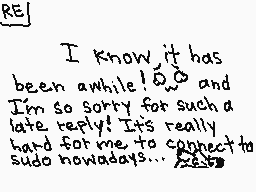 RE
I know it has
been awhile! and
I'm so sorry for such a
late reply! It's really
hard for me to connect to
sudo nowadays...